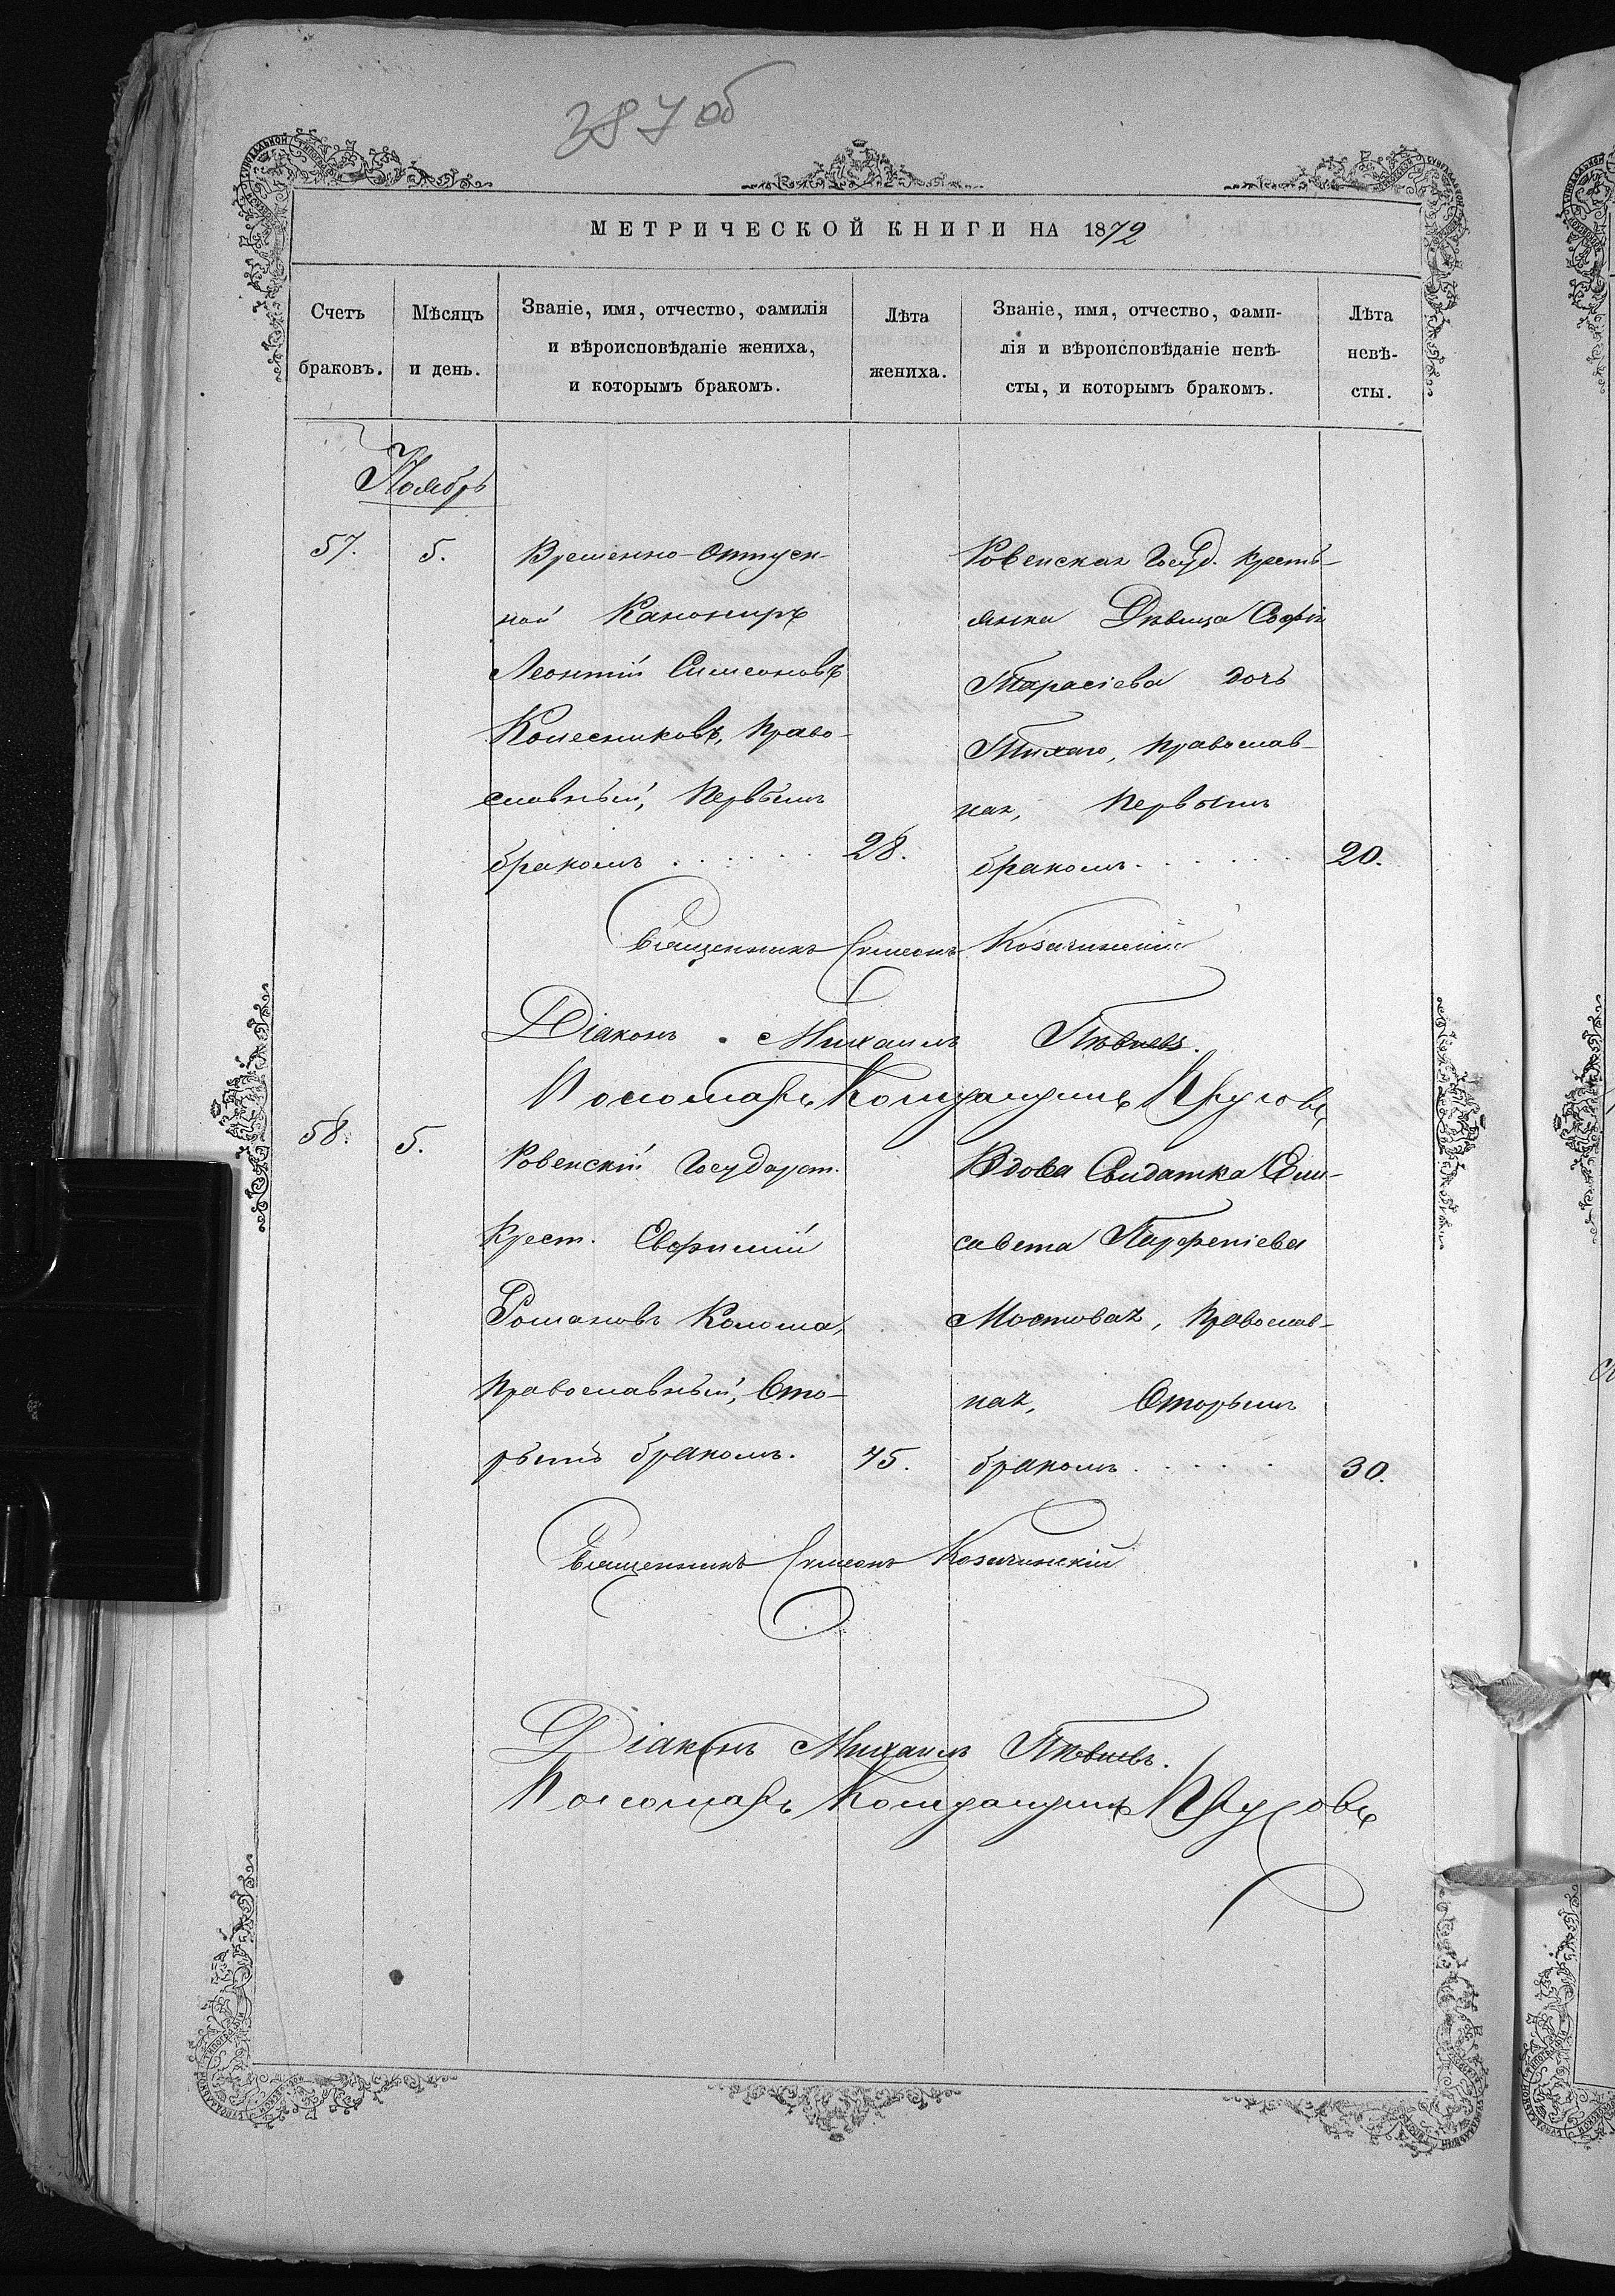 387 об
МЕТРИЧЕСКОЙ КНИГИ НА 1872
Счетъ браковъ.
Мѣсяцъ и день.
Званіе, имя, отчество, фамилія
и вѣроисповѣданіе жениха,
и которымъ бракомъ.
Лѣта жениха.
Званіе, имя, отчество, фами-
лія и вѣроисповѣданіе невѣ-
сты, и которымъ бракомъ.
Лѣта невѣ-
сты.
Ноябрь
57.
5.
Временно-Отпуск-
ной Канониръ
Леонтій Симеоновъ
Колесниковъ, Право-
славный, Первымъ
бракомъ . . . . . . 28.
Ровенская Госуд. кресть-
янка Дѣвица Софія
Тарасіева дочь
Тихаго, Православ-
ная, Первымъ
бракомъ . . . . . . 20.
Священникъ Симеонъ Козачинскій
Діаконъ Михаилъ Пѣвневъ.
Пономарь
58.
5.
Ровенскій Государст.
Крест. Евфимій
Романовъ Колома,
Православный, Вто-
рымъ бракомъ. 45.
Вдова Солдатка Ели-
савета Парфеніева
Мостовая, Православ-
ная, Вторымъ
бракомъ . . . . . 30.
Священникъ Симеонъ Козачинскій
Діаконъ Михаилъ Пѣвневъ.
Пономарь